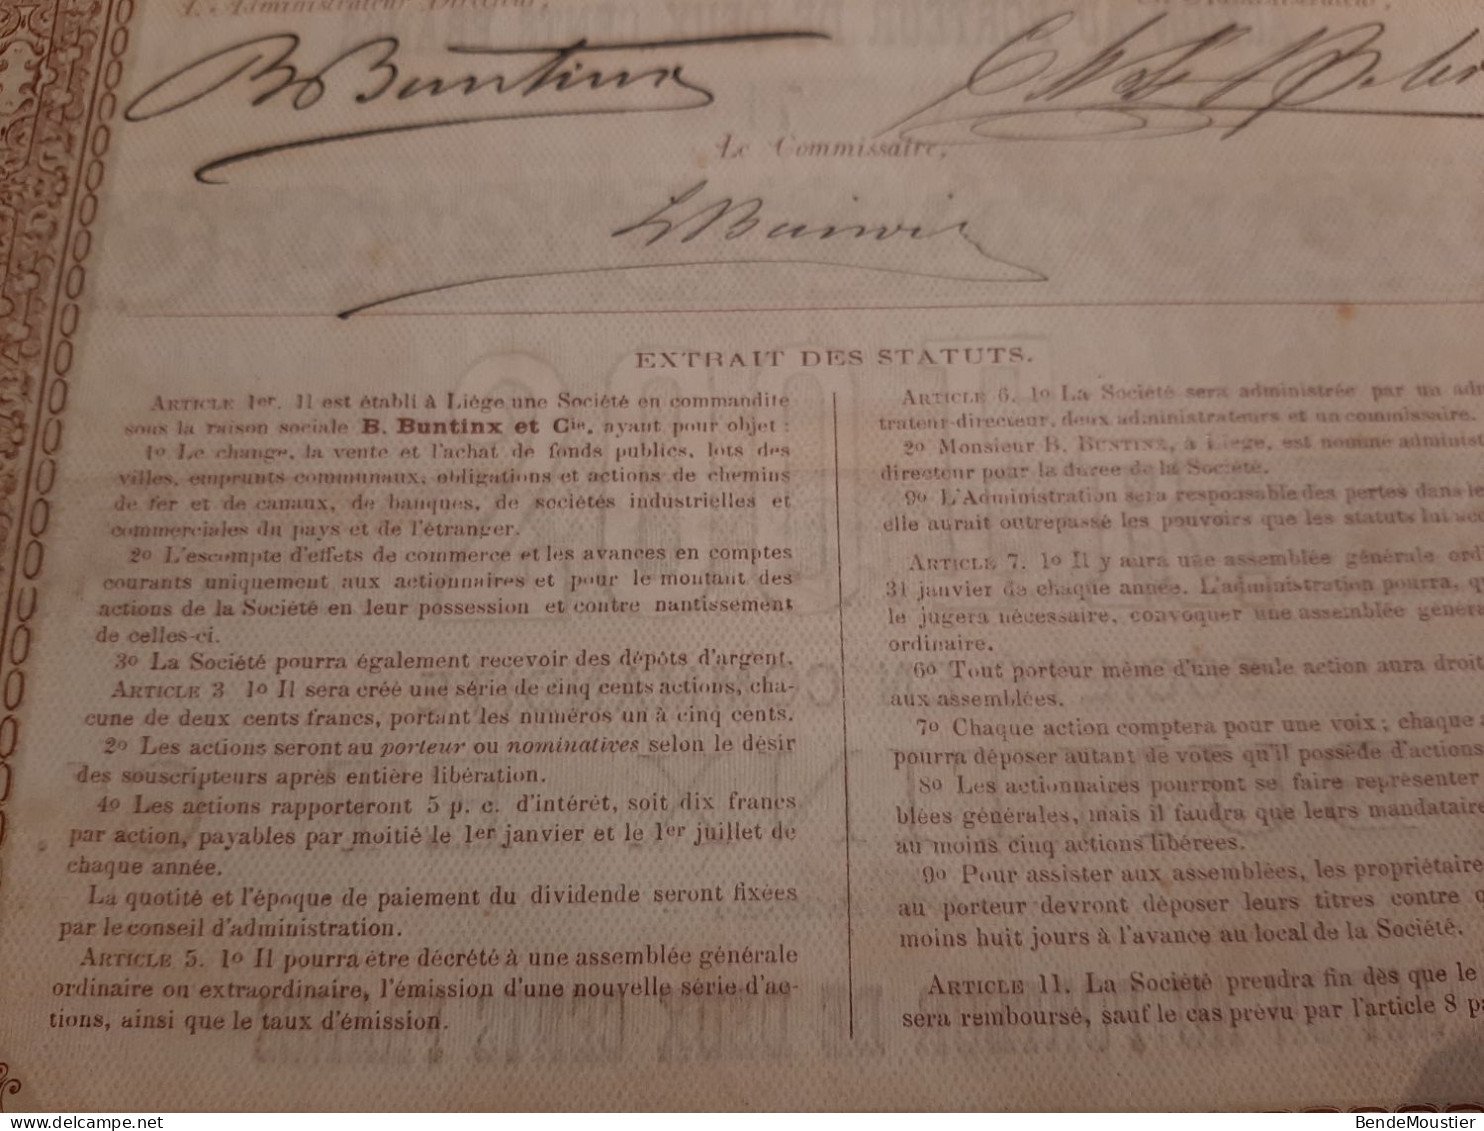 L'Administrateur Directeur,
Un Administrateur,
B Buntinx
Le Commissaire,
EXTRAIT DES STATUTS.
ARTICLE 1er. Il est établi à Liége une Société en commandite
sous la raison sociale B. Buntinx et Cie, ayant pour objet :
1o Le change, la vente et l'achat de fonds publics, lots des
villes, emprunts communaux, obligations et actions de chemins
de fer et de canaux, de banques, de sociétés industrielles et
commerciales du pays et de l'étranger.
2o L'escompte d'effets de commerce et les avances en comptes
courants uniquement aux actionnaires et pour le montant des
actions de la Société en leur possession et contre nantissement
de celles-ci.
3o La Société pourra également recevoir des dépôts d'argent.
ARTICLE 3 1o Il sera créé une série de cinq cents actions, cha-
cune de deux cents francs, portant les numéros un à cinq cents.
2o Les actions seront au porteur ou nominatives selon le désir
des souscripteurs après entière libération.
4o Les actions rapporteront 5 p. c. d'intérêt, soit dix francs
par action, payables par moitié le 1er janvier et le 1er juillet de
chaque année.
La quotité et l'époque de paiement du dividende seront fixées
par le conseil d'administration.
ARTICLE 5. 1o Il pourra être décrété à une assemblée générale
ordinaire ou extraordinaire, l'émission d'une nouvelle série d'ac-
tions, ainsi que le taux d'émission.
ARTICLE 6. 1o La Société sera administrée par un adm
trateur-directeur, deux administrateurs et un commissaire.
2o Monsieur B. BUNTINX, à Liége, est nommé administ
directeur pour la durée de la Société.
9o L'Administration sera responsable des pertes dans le
elle aurait outrepassé les pouvoirs que les statuts lui acc
ARTICLE 7. 1o Il y aura une assemblée générale ordi
31 janvier de chaque année. L'administration pourra, qu
le jugera nécessaire, convoquer une assemblée généra
ordinaire.
6o Tout porteur même d'une seule action aura droit
aux assemblées.
7o Chaque action comptera pour une voix ; chaque a
pourra déposer autant de votes qu'il possède d'actions
8o Les actionnaires pourront se faire représenter
blées générales, mais il faudra que leurs mandataire
au moins cinq actions libérées.
9o Pour assister aux assemblées, les propriétaire
au porteur devront déposer leurs titres contre q
moins huit jours à l'avance au local de la Société.
ARTICLE 11. La Société prendra fin dès que le
sera remboursé, sauf le cas prévu par l'article 8 pa
BendeMoustier